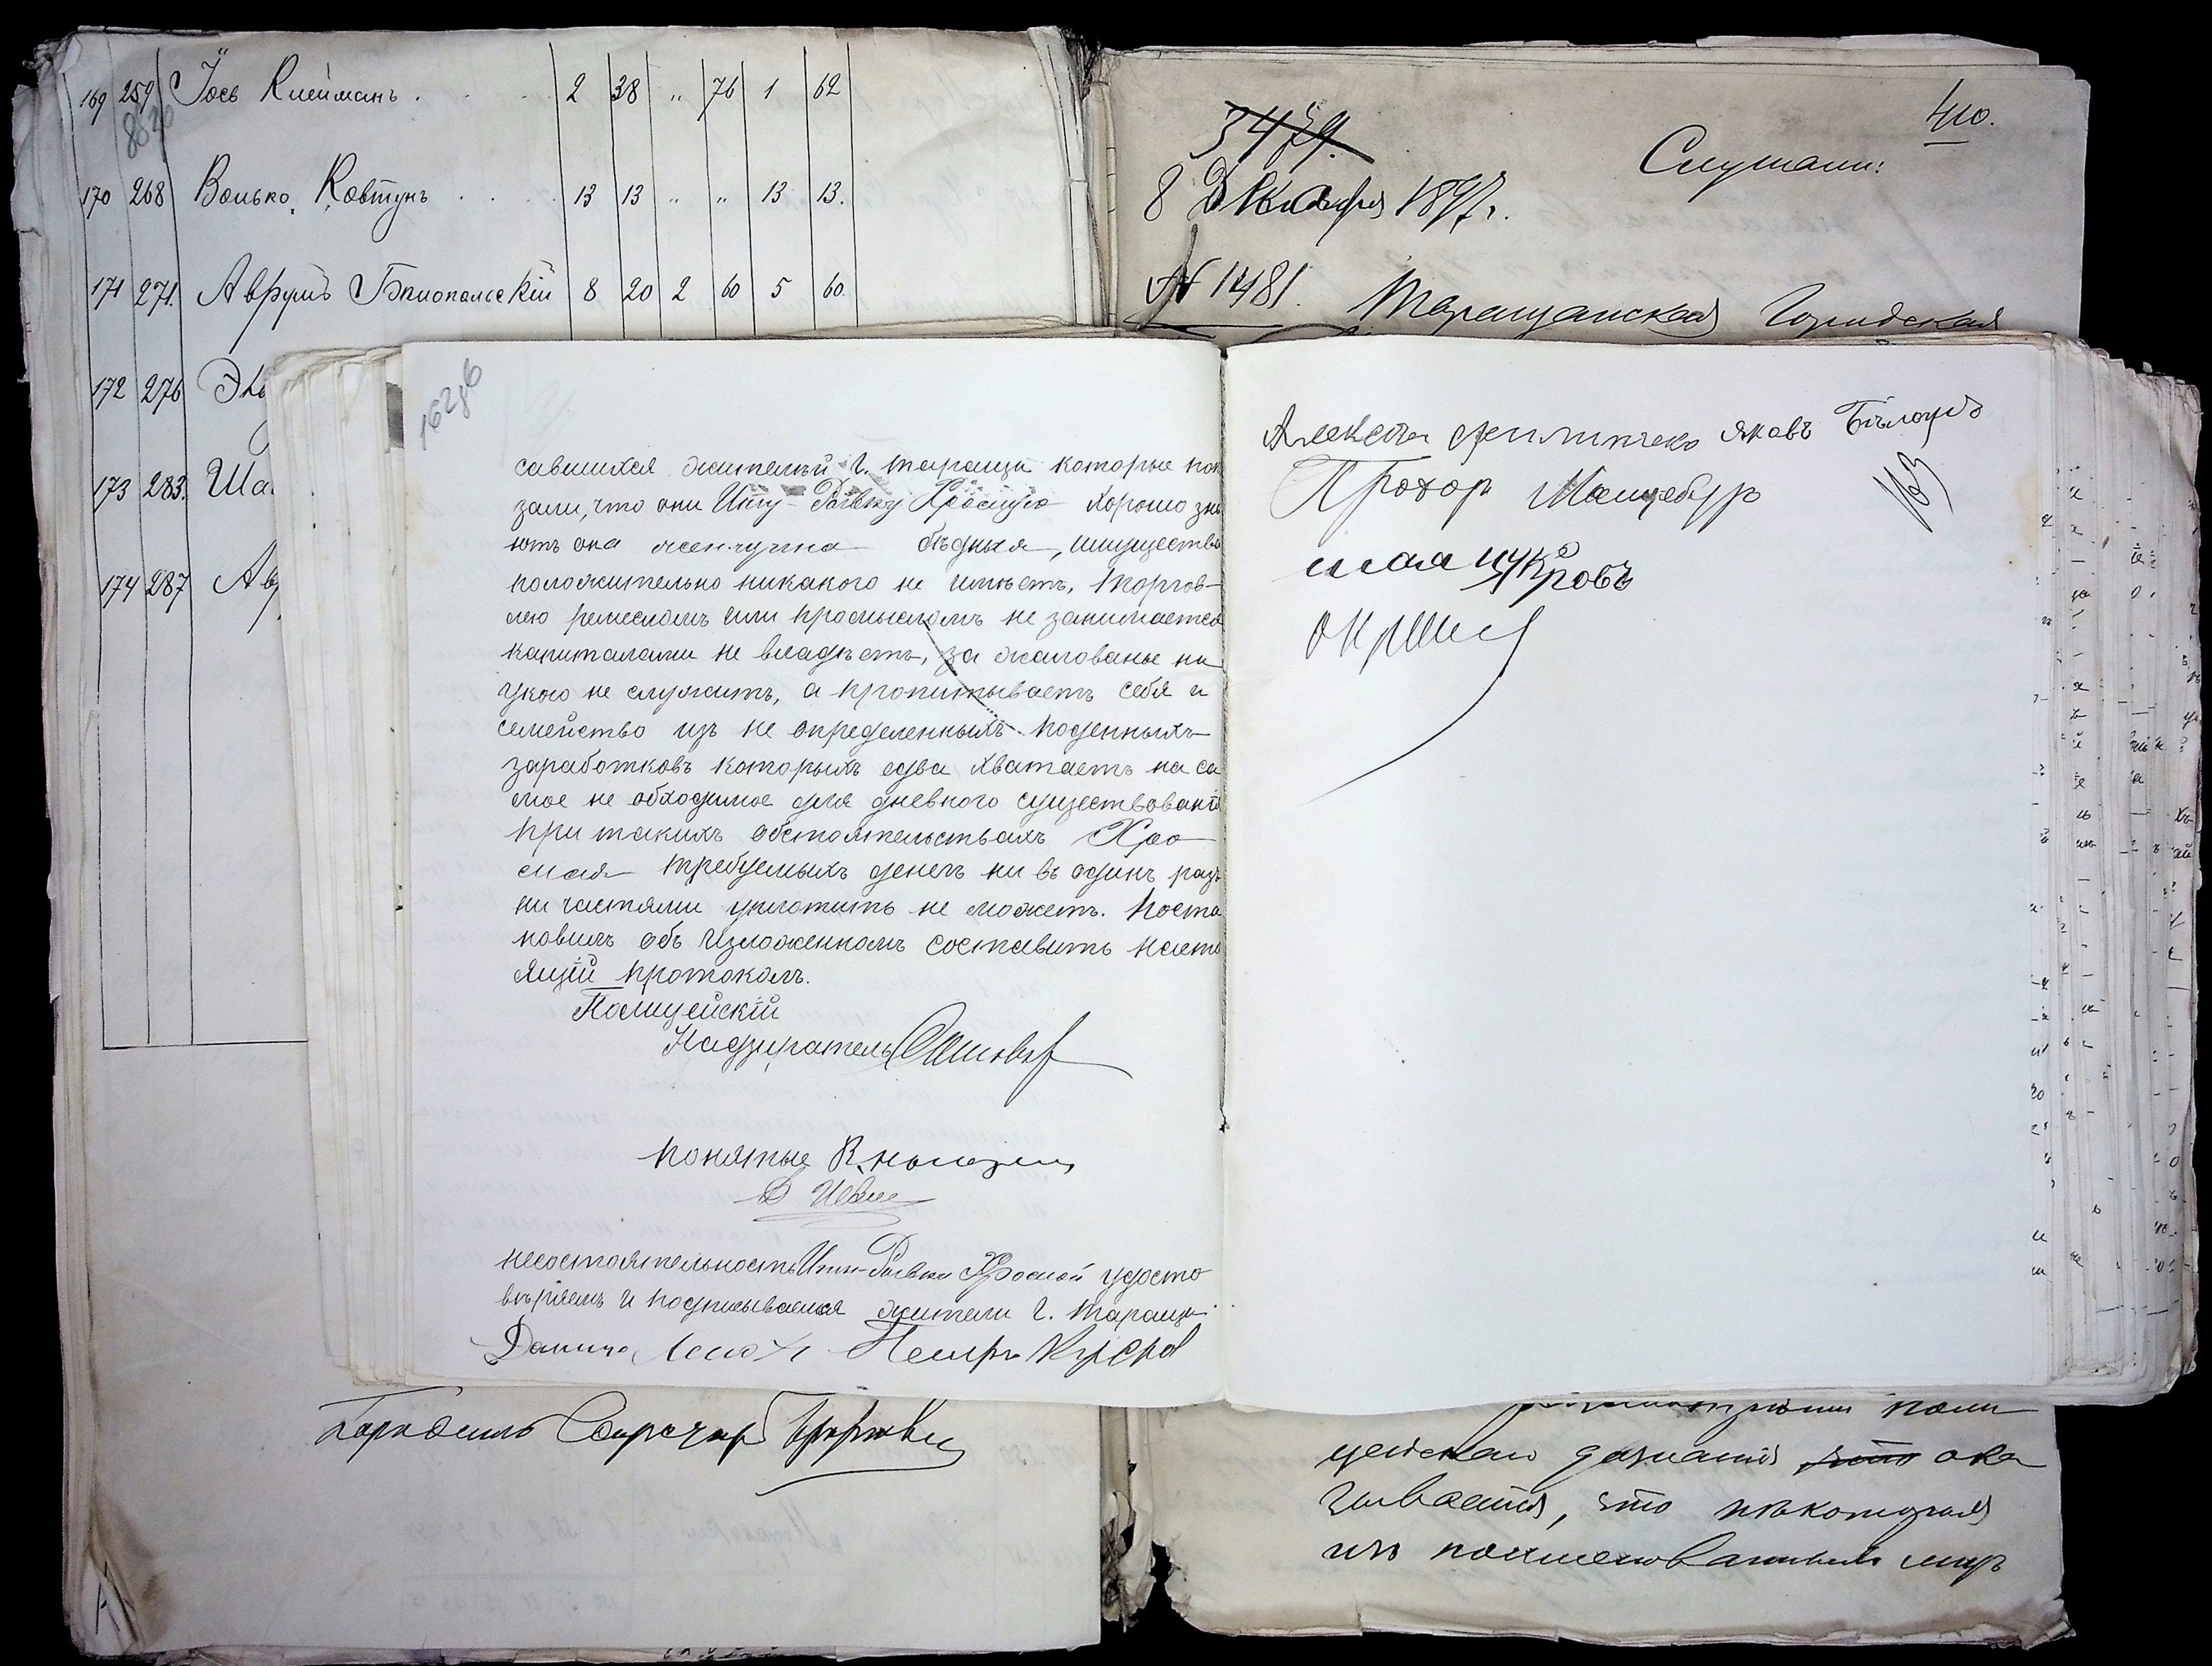 169 259 Іось Клейманъ . . . 2 38 " 76 1 62
170 268 Волько Ковтунъ . . . 13 13 " " 13 13.
171 271. Аврумъ Бялопольскій 8 20 2 60 5 60.
172 276
173 283. Ша
174 287 Ав
410.
3479.
Слушали:
8 Декабря 1897 г.
№ 1481.
Таращанская Городская
162
савшихся жителей г. Таращи которые пок
зали, что они Иту-Ривку Хросную хорошо зна
ютъ она женщина бѣдная, имущества
положительно никакого не имѣетъ, торгов-
лею ремесломъ или промысломъ не занимается
капиталами не владѣетъ, за жалованье ни
укого не служитъ, а пропитываетъ себя и
семейство изъ не определенныхъ поденныхъ
заработковъ которыхъ едва хватаетъ на са
мое не обходимое для дневного существованія
при такихъ обстоятельствахъ Хро
сная требуемыхъ денегъ ни въ одинъ разъ
ни частями уплотить не можетъ. Поста
новилъ объ изложенномъ составить насто
ящій протоколъ.
Полицейскій
Надзиратель
Понятые
несостоятельность Иты-Ривки Хросной удосто
вѣряемъ и подписываемся жители г. Таращи
Данило Петръ
Алексѣй Яковъ Білоусъ
Прохоръ Мацебуръ
163
цейскаго дознанія что ока
зывается, что некоторыя
изъ поименованныхъ лицъ